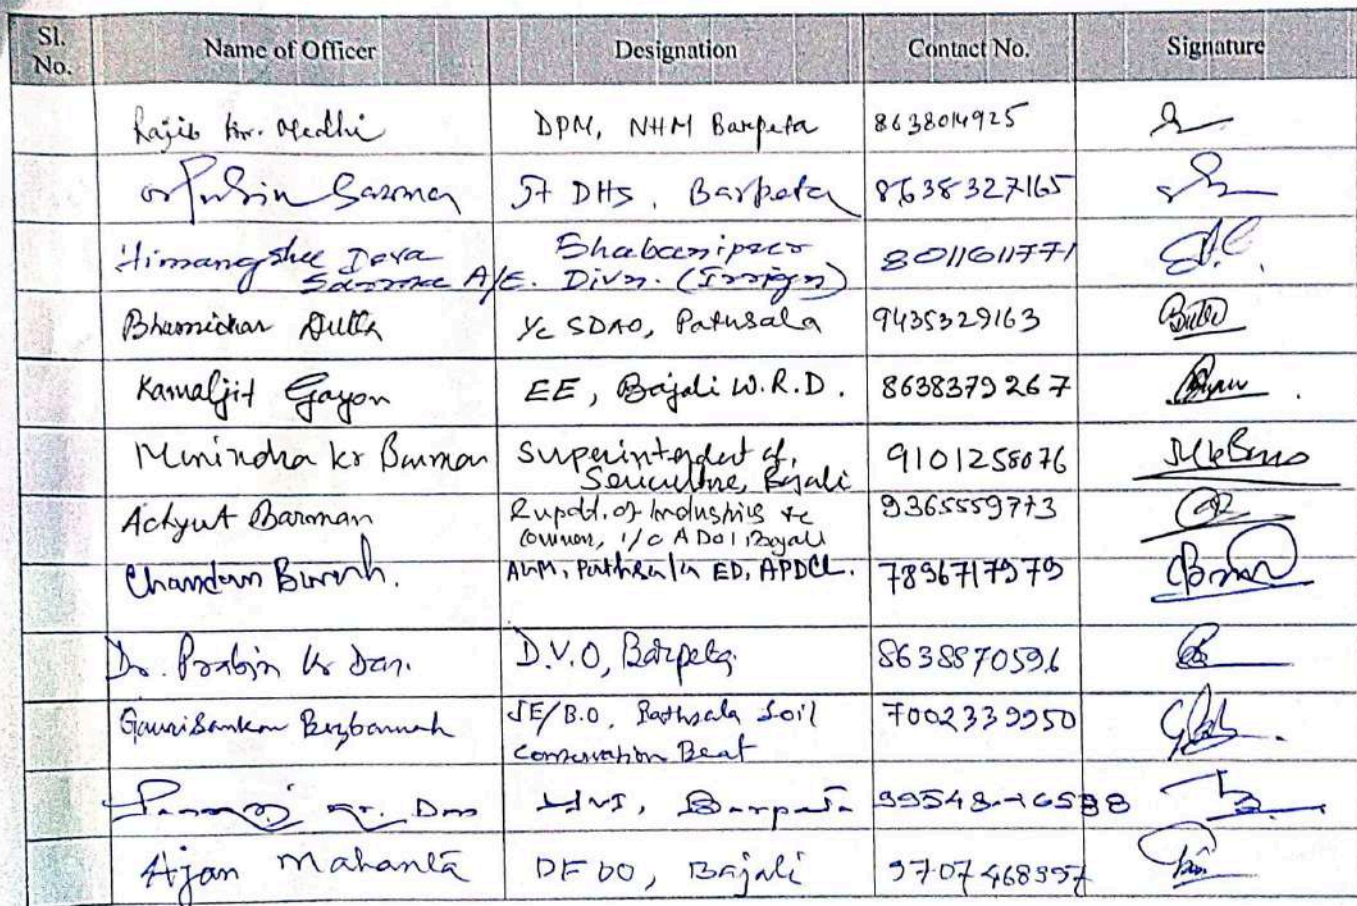 Sl. No. Name of Officer Designation Contact No. Signature
Rajib Kr. Medhi DPM, NHM Barpeta 8638014925
Sarma Jt DHS, Barpeta 8638327165
Himangshu Deva Sarma A/E. Bhabanipur Divn. (Irrign) 8011611771
Dutta I/c SDAO, Pathsala 9435329163
Kamaljit Gayon EE, Bajali W.R.D. 8638379267
Minindra kr Barman Superintendent of, Sericulture, Bajali 9101258076
Achyut Barman Supdt. of Industries & Comm, i/c ADOI, Bajali 9365559773
Chandan AGM, Pathsala ED, APDCL. 7896717979
Dr. Prabin Kr Das. D.V.O, Barpeta 8638870596
Gaurisankar Bezbaruah JE/B.O, Pathsala Soil Conservation Beat 7002339950
Kr. Das Barpeta
Ajan Mahanta DFDO, Bajali 9707468997